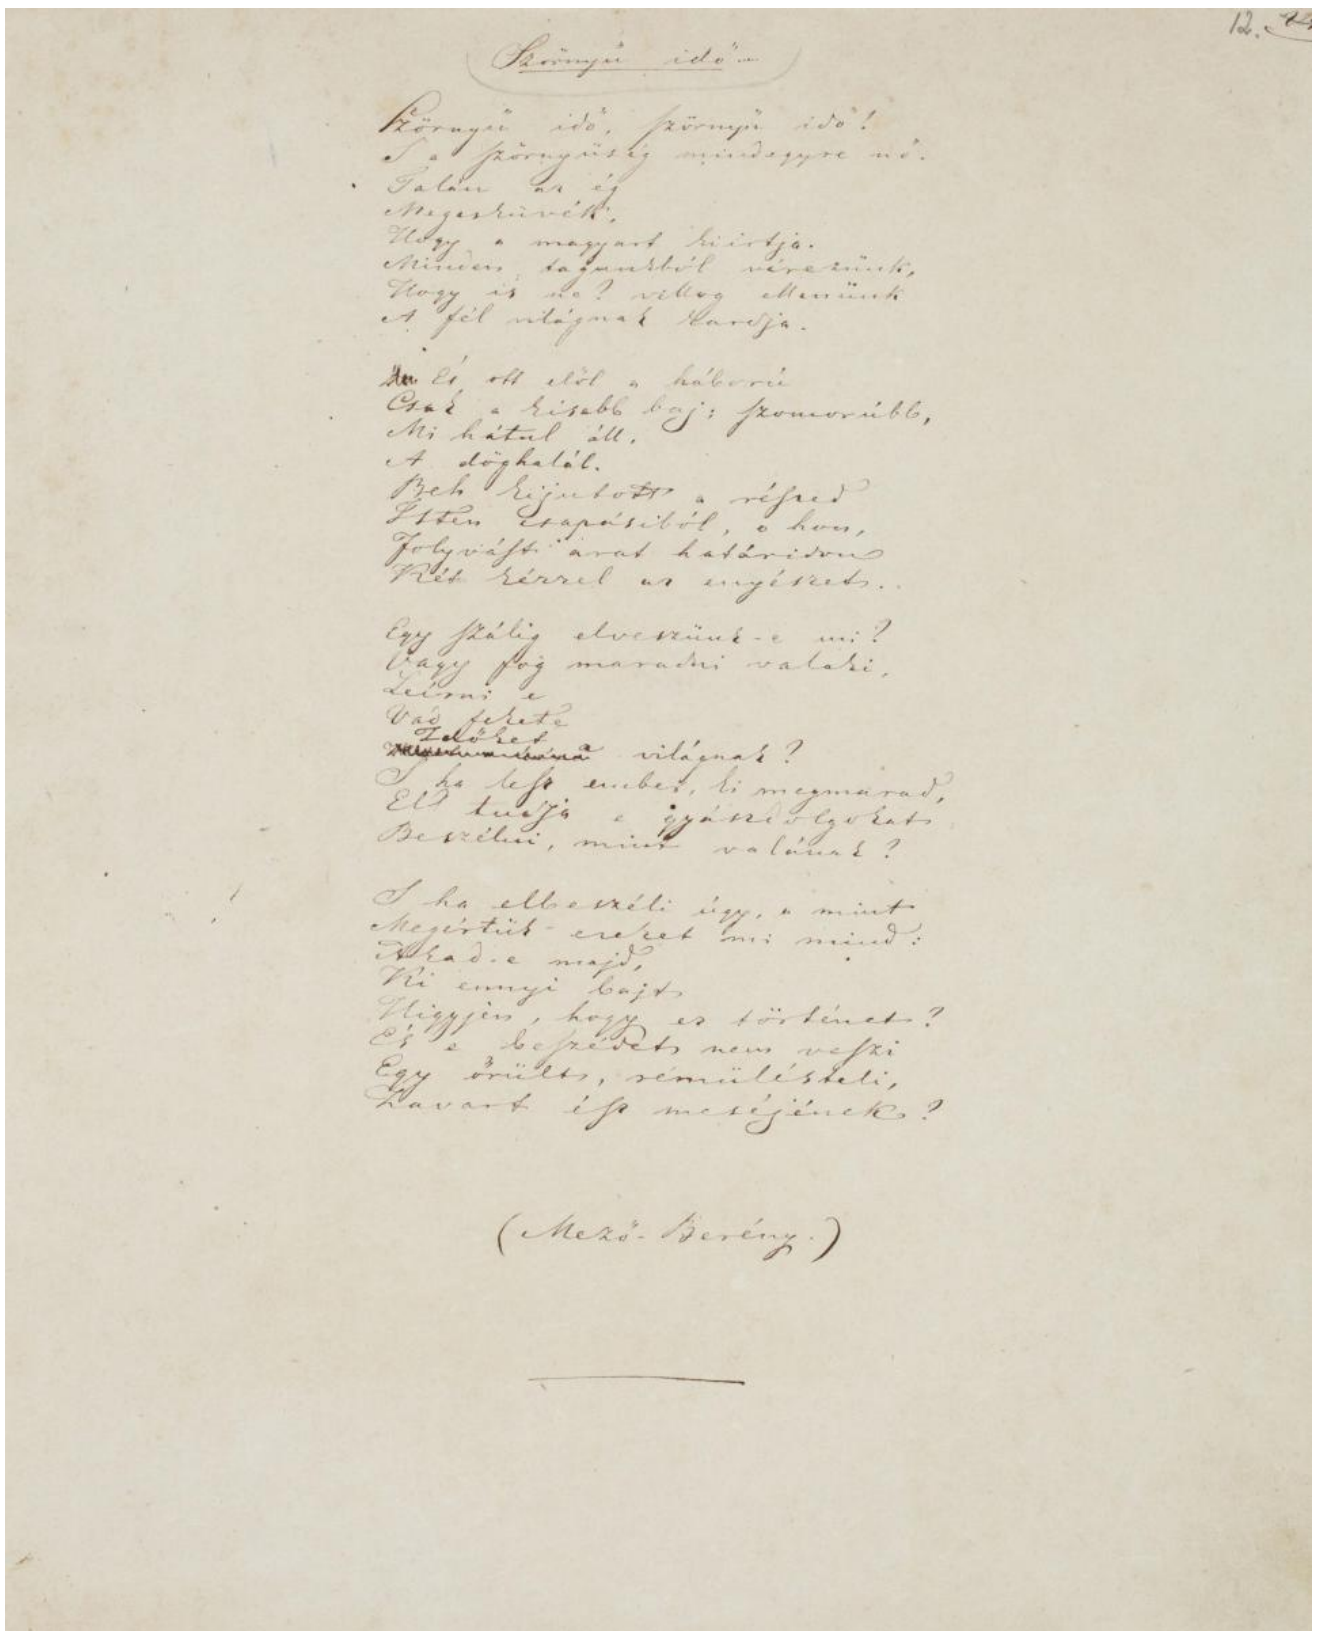 12.
Szörnyű idő...
Szörnyű idő, szörnyű idő!
S a szörnyűség mindegyre nő.
Talán az ég
Megesküvék,
Hogy a magyart kiirtja.
Minden tagunkból vérezünk,
Hogy is ne? villog ellenünk
A fél világnak kardja.
És ott elől a háború
Csak a kisebb baj; szomorúbb,
Mi hátul áll,
A döghalál.
Beh kijutott a részed
Isten csapásiból, o hon,
Folyvást arat határidon
Két kézzel az enyészet.
Egy szálig elveszünk-e mi?
Vagy fog maradni valaki,
Leírni e
Vad fekete
Időket
a világnak?
S ha lesz ember, ki megmarad,
El tudja e gyászdolgokat
Beszélni, mint valának?
S ha elbeszéli úgy, a mint
Megértük ezeket mi mind:
Akad-e majd,
Ki ennyi bajt
Higyjen, hogy ez történet?
És e beszédet nem veszi
Egy őrült, rémülésteli,
Zavart ész meséjének?
(Mező-Berény.)